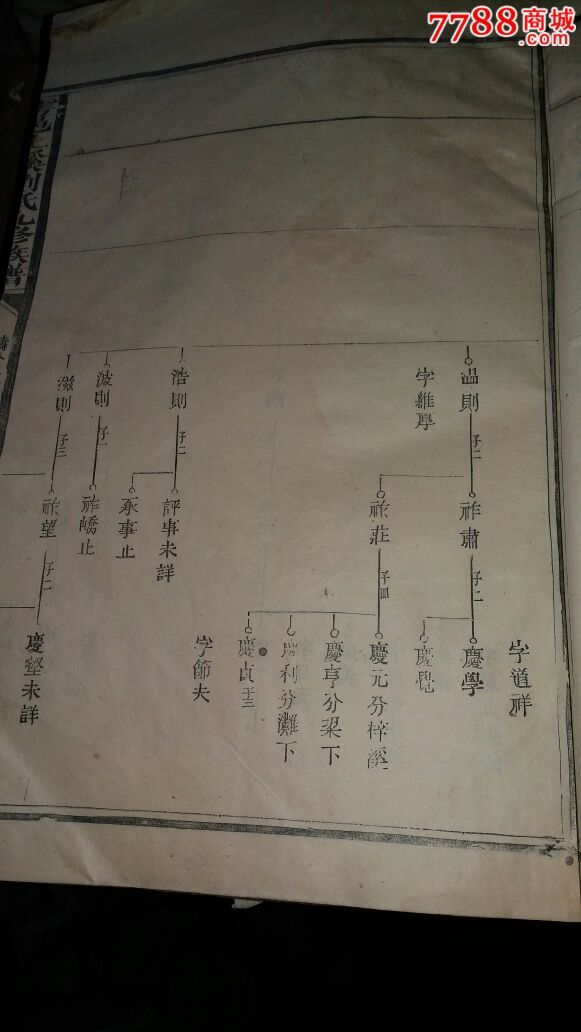 7788商城
.com
氏九修族譜
溫則
字維厚
浩則
波則
滋則
子二
子二
子一
子三
祚肅
祚莊
評事未詳
承事止
祚嶠止
祚望
子二
子四
子二
字道祥
慶學
慶覺
慶元分梓溪
慶亨分梁下
慶利分灘下
慶貞
子三
字節夫
慶壑未詳